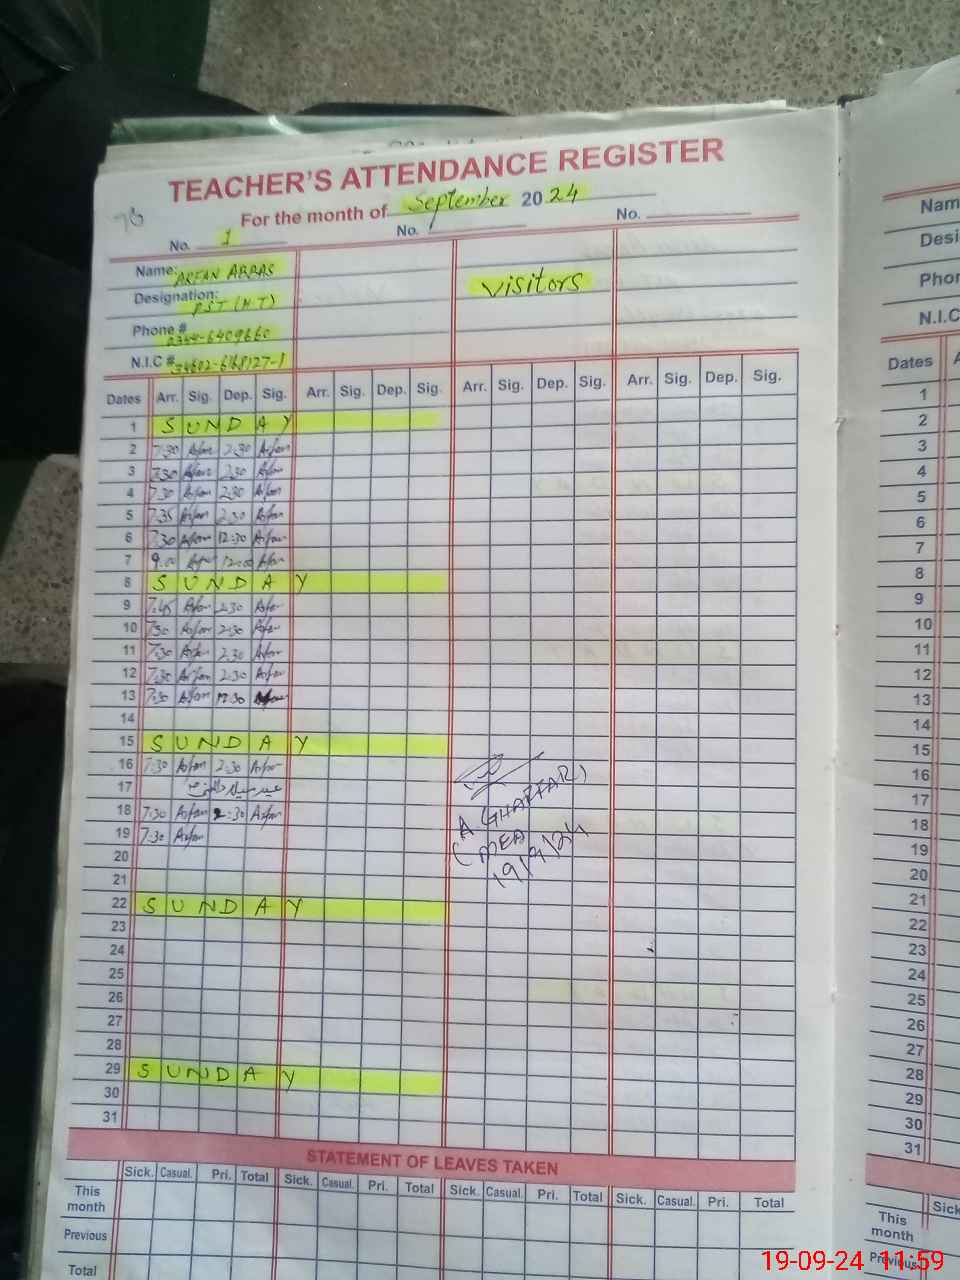 TEACHER'S ATTENDANCE REGISTER
For the month of September 2024
No. 1 No. No.
Name: ARFAN ABBAS
Designation: PST (H.T)
visitors
Phone #
N.I.C #
Dates Arr. Sig. Dep. Sig. Arr. Sig. Dep. Sig. Arr. Sig. Dep. Sig. Arr. Sig. Dep. Sig.
1 SUNDAY
2 7:30 Arfan 2:30 Arfan
3 7:30 Arfan 2:30 Arfan
4 7:30 Arfan 2:30 Arfan
5 7:35 Arfan 2:30 Arfan
6 7:30 Arfan 12:30 Arfan
7 9:00 Arfan 12:00 Arfan
8 SUNDAY
9 7:45 Arfan 2:30 Arfan
10 7:30 Arfan 2:30 Arfan
11 7:30 Arfan 2:30 Arfan
12 7:30 Arfan 2:30 Arfan
13 7:30 Arfan 12:30 Arfan
14
15 SUNDAY
16 7:30 Arfan 2:30 Arfan
17 عید میلاد النبی
18 7:30 Arfan 2:30 Arfan
19 7:30 Arfan
20
21
22 SUNDAY
23
24
25
26
27
28
29 SUNDAY
30
31
(A. GHAFFAR)
19/9/24
STATEMENT OF LEAVES TAKEN
Sick. Casual. Pri. Total Sick. Casual. Pri. Total Sick. Casual. Pri. Total Sick. Casual. Pri. Total
This month
Previous
Total
Nam
Desi
Phon
N.I.C
Dates A
1
2
3
4
5
6
7
8
9
10
11
12
13
14
15
16
17
18
19
20
21
22
23
24
25
26
27
28
29
30
31
Sick
This month
Previous
19-09-24 11:59